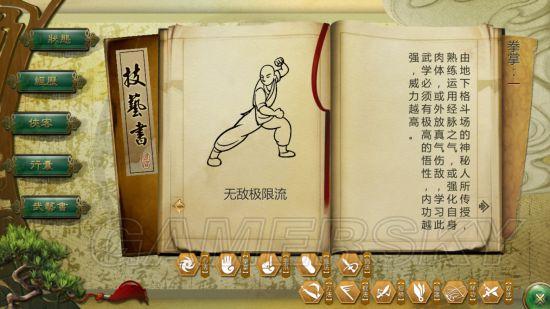 狀態
經歷
俠客
行囊
武藝書
技藝書
无敌极限流
拳掌：一
由地下格斗场的神秘人所传授，
熟练运用经脉之气，或强化自身
肉体，或外放真气伤敌，学习此
武学必须有极高的悟性，内功越
强，威力越高。
GAMERSKY